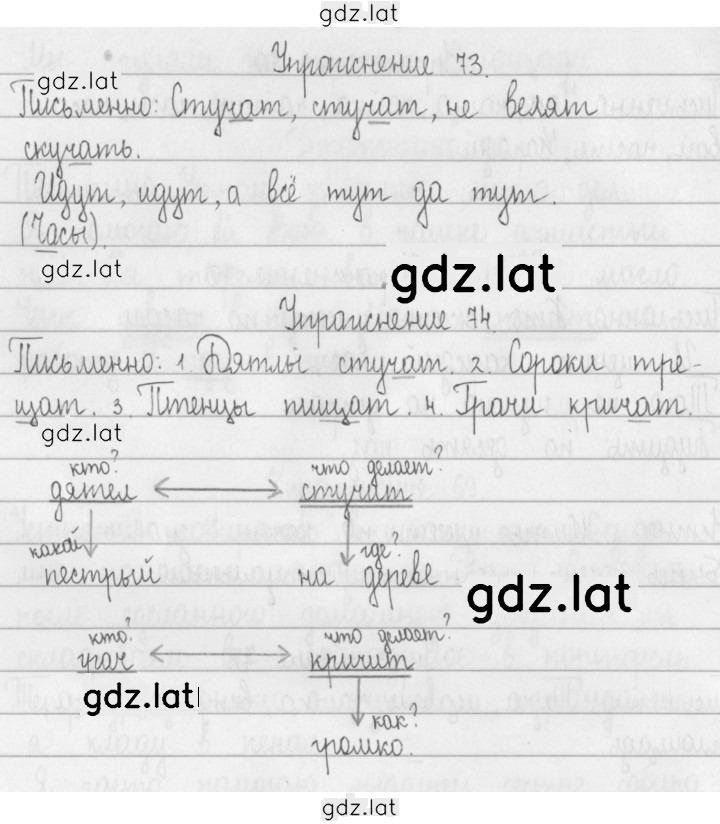 gdz.lat
Упражнение 73.
gdz.lat
Письменно: Стучат, стучат, не велят
скучать.
Идут, идут, а всё тут да тут.
(Часы).
gdz.lat
gdz.lat
Упражнение 74
Письменно: 1. Дятлы стучат. 2. Сороки тре-
щат. 3. Птенцы пищат. 4. Грачи кричат.
gdz.lat
кто? что делает?
дятел стучат
какой? где?
пестрый на дереве
gdz.lat
кто? что делает?
грач кричит
gdz.lat
как?
громко.
gdz.lat